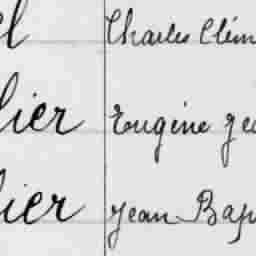 Charles Clém
lier Eugène Geo
lier Jean Bap